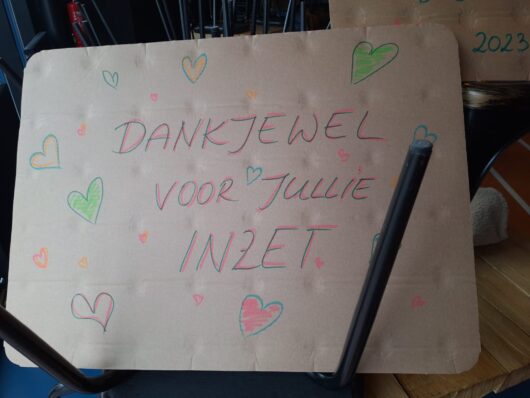 2023
DANKJEWEL
VOOR JULLIE
INZET